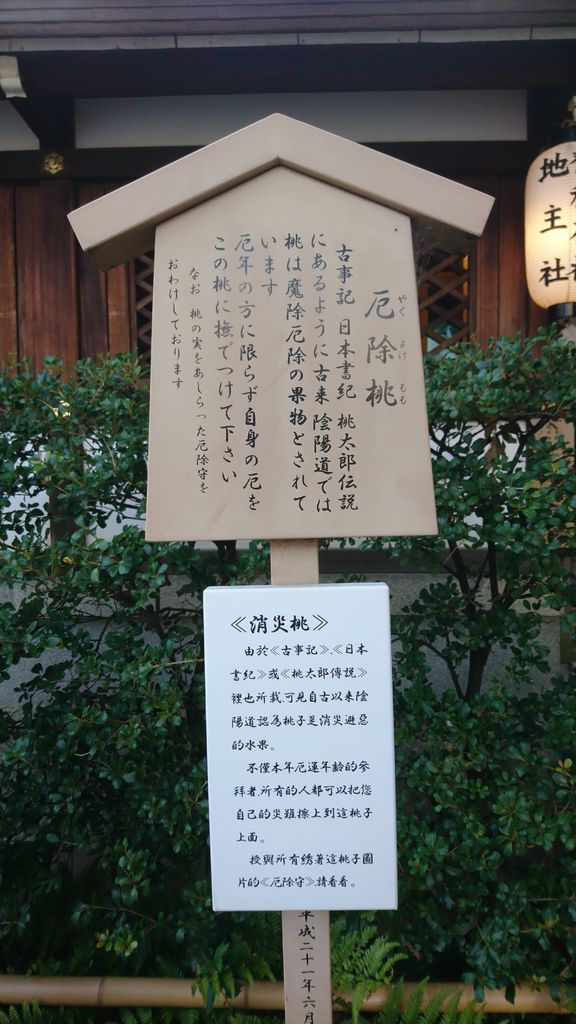 厄除桃
やく よけ もも
古事記 日本書紀 桃太郎伝説
にあるように古来 陰陽道では
桃は魔除厄除の果物とされて
います
厄年の方に限らず自身の厄を
この桃に撫でつけて下さい
なお 桃の実をあしらった厄除守を
おわけしております
《消災桃》
由於《古事記》、《日本
書紀》或《桃太郎傳説》
裡也所載,可見自古以来陰
陽道認為桃子是消災避惡
的水果。
不僅本年厄運年齡的參
拜者,所有的人都可以把您
自己的災難擦上到這桃子
上面。
授與所有绣著這桃子圖
片的《厄除守》,請看看。
平成二十一年六月
地主社